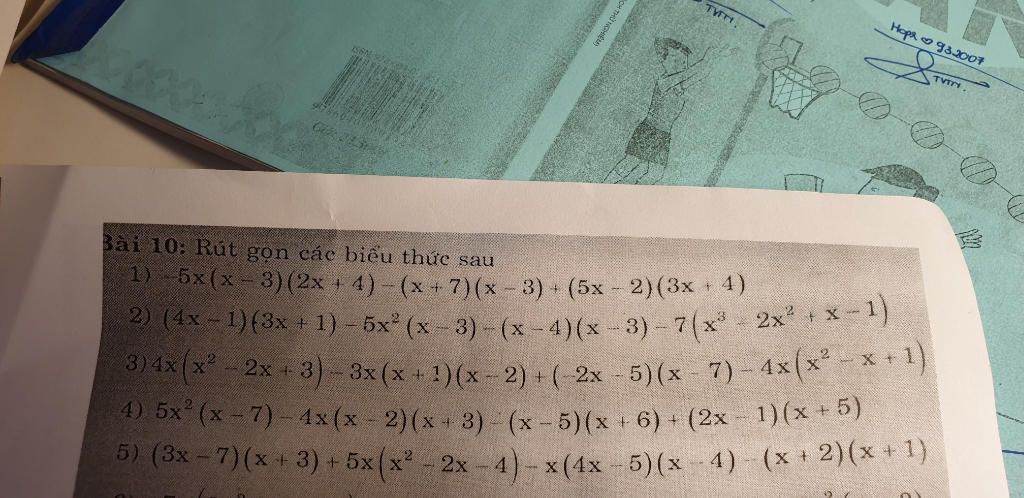 TVTM.
Hopa ♡ 93.2007
TVTM.
Bài 10: Rút gọn các biểu thức sau
1) -5x(x - 3)(2x + 4) - (x + 7)(x - 3) + (5x - 2)(3x + 4)
2) (4x - 1)(3x + 1) - 5x²(x - 3) - (x - 4)(x - 3) - 7(x³ - 2x² + x - 1)
3) 4x(x² - 2x + 3) - 3x(x + 1)(x - 2) + (-2x - 5)(x - 7) - 4x(x² - x + 1)
4) 5x²(x - 7) - 4x(x - 2)(x + 3) - (x - 5)(x + 6) + (2x - 1)(x + 5)
5) (3x - 7)(x + 3) + 5x(x² - 2x - 4) - x(4x - 5)(x - 4) - (x + 2)(x + 1)